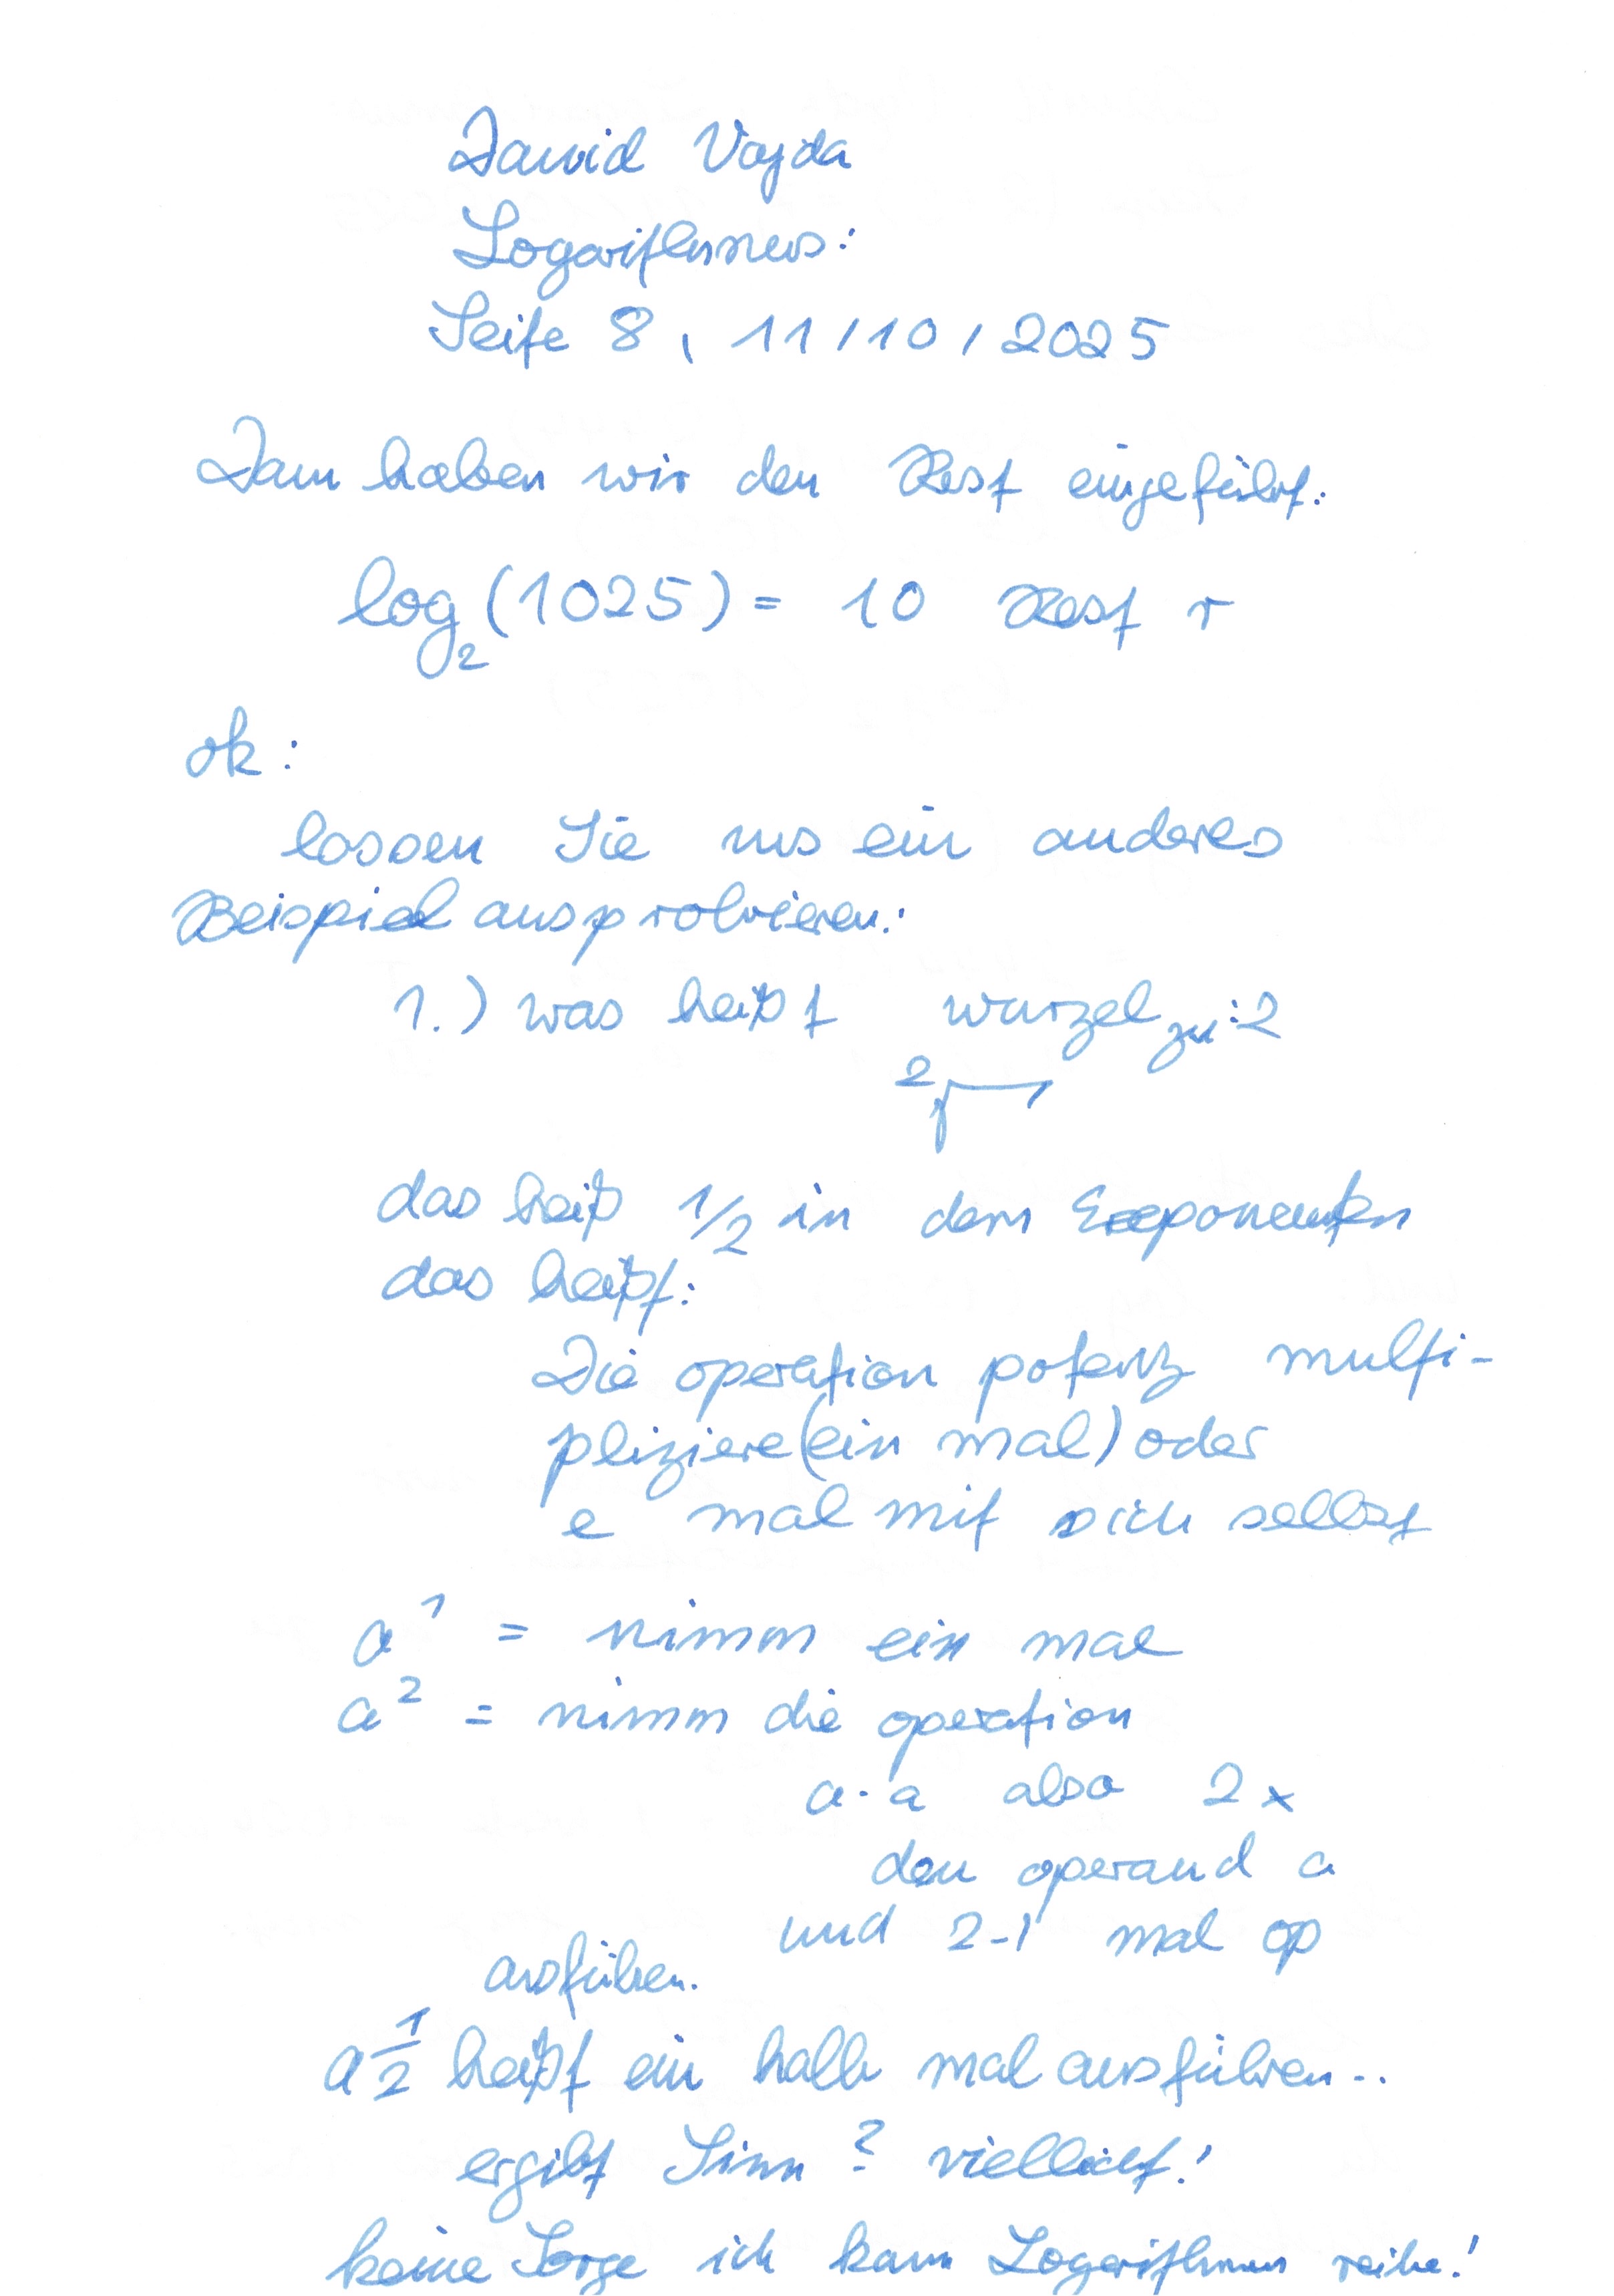 David Vajda
Logarithmus:
Seite 8, 11/10/2025
Dann haben wir den Rest eingeführt:
log₂(1025) = 10 Rest r
ok:
lassen Sie uns ein anderes
Beispiel ausprobieren:
1.) was heißt wurzel zu:2
²√
das heiß 1/2 in dem Exponenten
das heißt:
Die operation potenz multi-
pliziere (ein mal) oder
e mal mit sich selbst
a¹ = nimm ein mal
a² = nimm die operation
a·a also 2x
den operand a
und 2-1 mal op
ausführen.
a^1/2 heißt ein halb mal ausführen..
ergibt Sinn? vielleicht!
keine Sorge ich kann Logarithmus reihe!